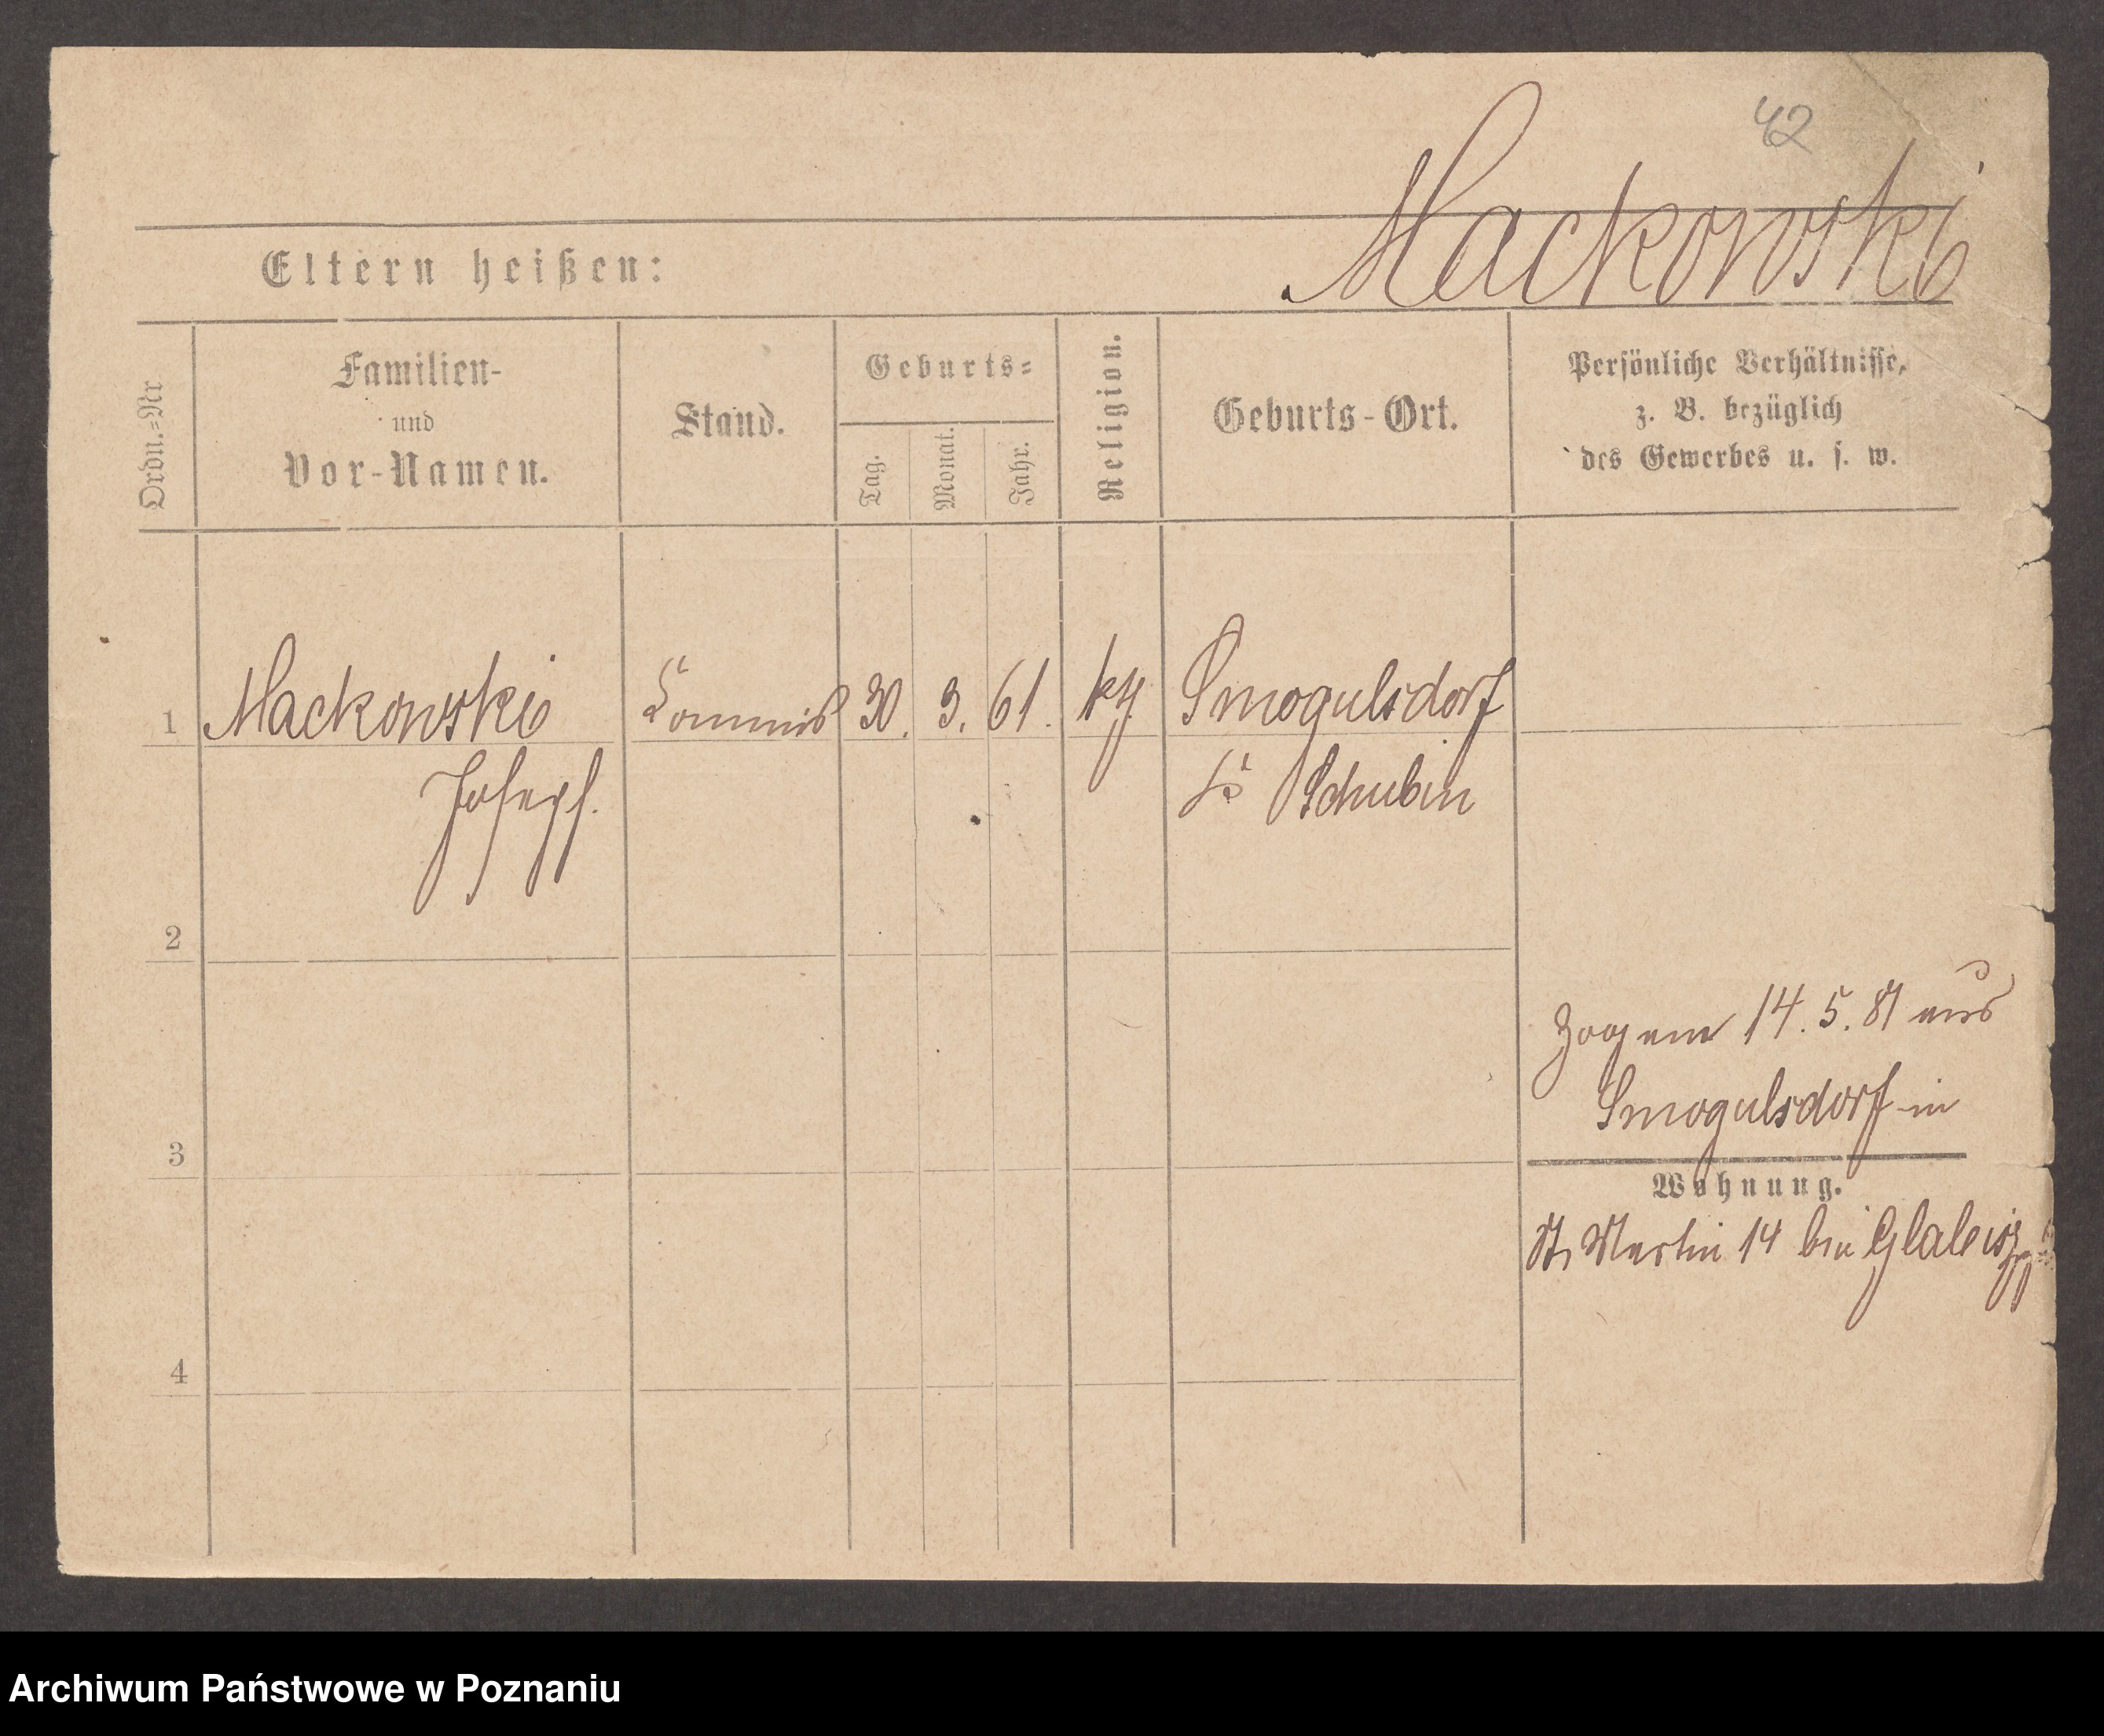 42
Mackowski
Eltern heißen:
Ordn.=Nr
Familien-
und
Vor-Namen.
Stand.
Geburts=
Tag.
Monat.
Jahr.
Religion.
Geburts-Ort.
Persönliche Verhältnisse,
z. B. bezüglich
des Gewerbes u. s. w.
1 Mackowski Commis 30. 3. 61. kth. Smogulsdorf
Joseph. Schubin
2
Zog am 14. 5. 81 aus
Smogulsdorf in
3
Wohnung.
St. Martin 14 bei
4
Archiwum Państwowe w Poznaniu